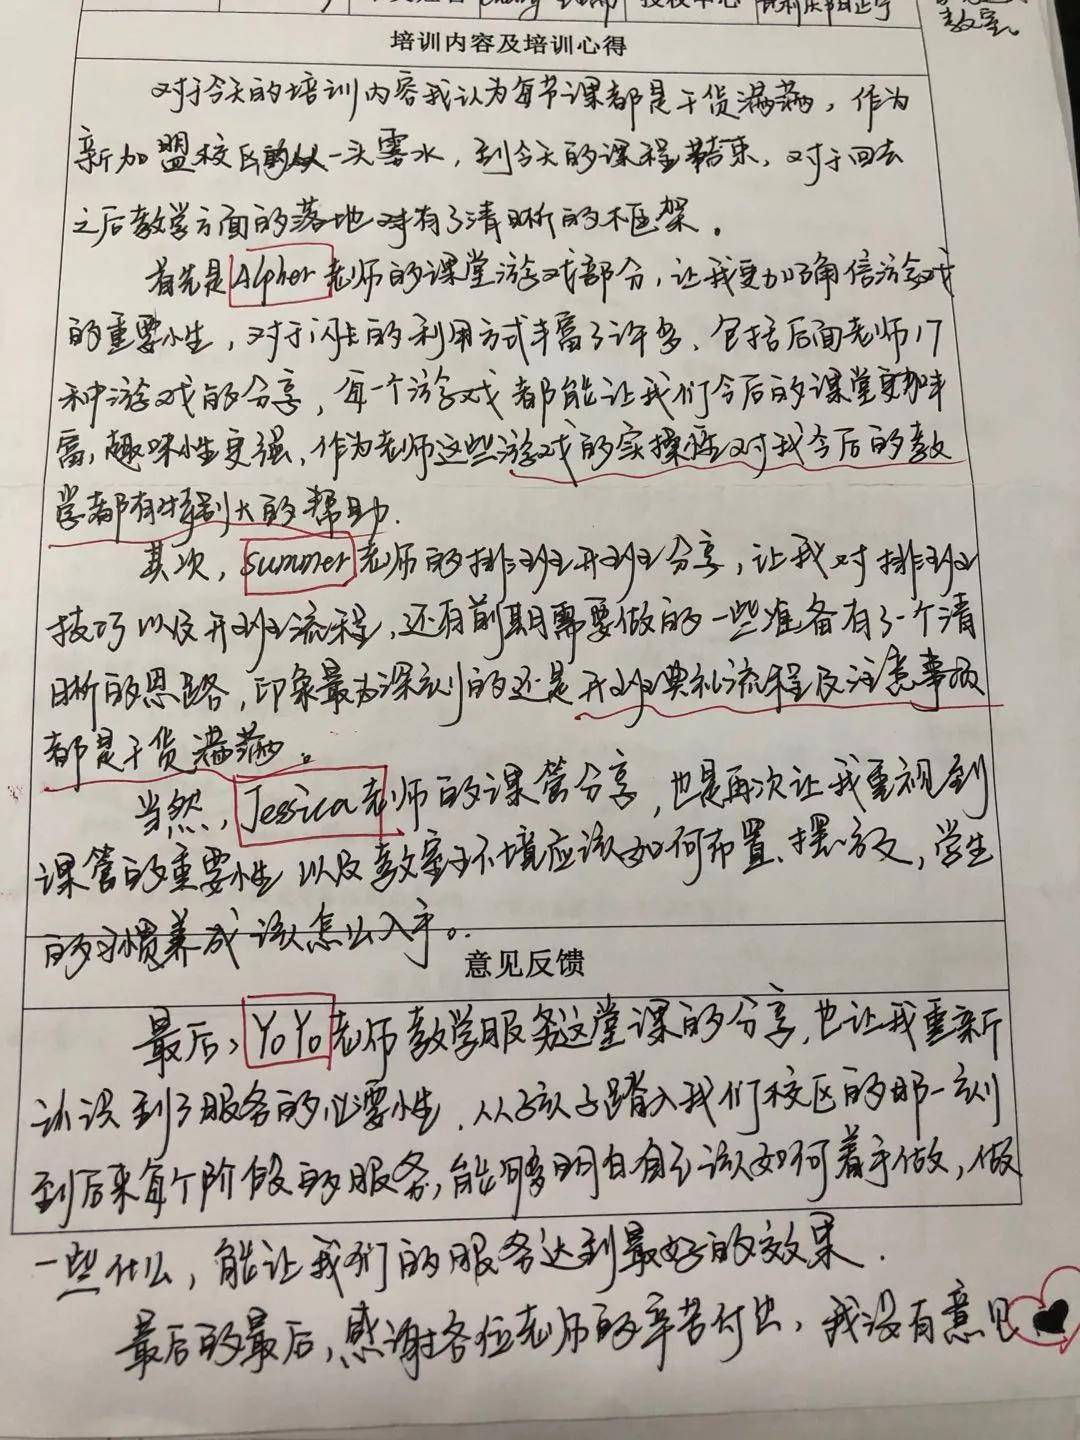 授权中心
教室。
培训内容及培训心得
对于今天的培训内容我认为每节课都是干货满满，作为
新加盟校区的从一头雾水，到今天的课程结束，对于回去
之后教学方面的落地对有了清晰的框架。
首先是Alpher老师的课堂游戏部分，让我更加确信游戏
的重要性，对于闪卡的利用方式丰富了许多，包括后面老师17
种游戏的分享，每一个游戏都能让我们今后的课堂更加丰
富，趣味性更强，作为老师这些游戏的实操性对我今后的教
学都有特别大的帮助.
其次，summer老师的排班开班分享，让我对排班
技巧以及开班流程，还有前期需要做的一些准备有了一个清
晰的思路，印象最为深刻的还是开班典礼流程及注意事项
都是干货满满。
当然，Jessica老师的课管分享，也是再次让我重视到
课管的重要性以及教室环境应该如何布置、摆放，学生
的习惯养成该怎么入手。
意见反馈
最后，YoYo老师教学服务这堂课的分享，也让我重新
认识到了服务的必要性，从孩子踏入我们校区的那一刻
到后来每个阶段的服务，能够明白自己该如何着手做，做
一些什么，能让我们的服务达到最好的效果.
最后的最后，感谢各位老师的辛苦付出，我没有意见